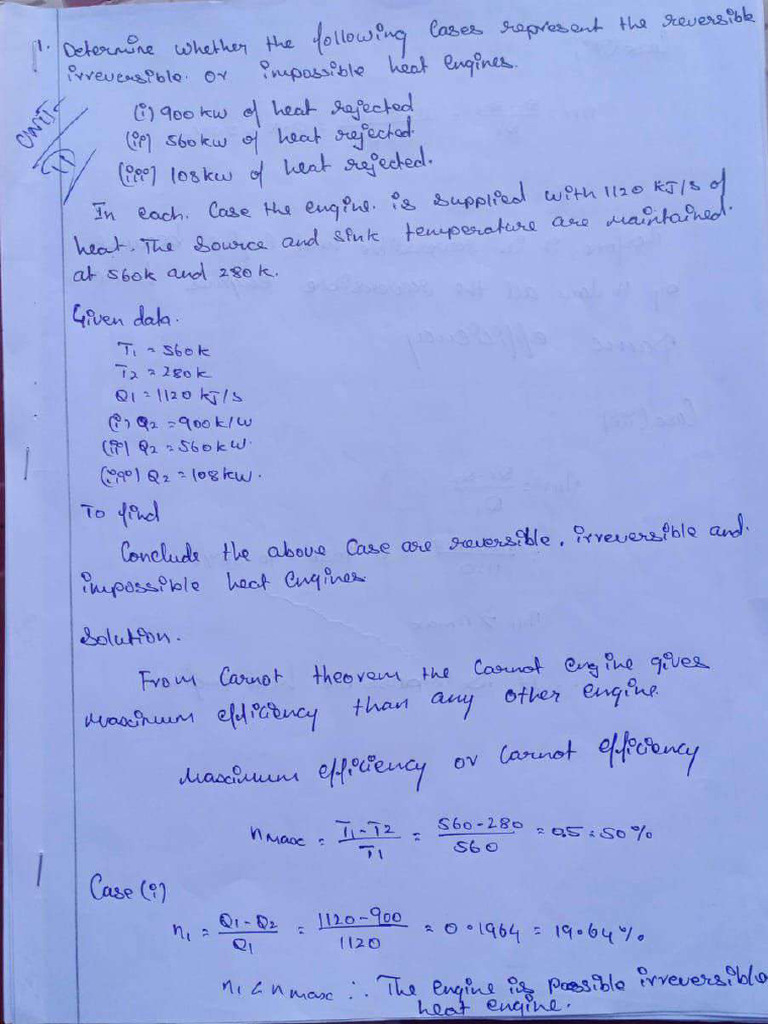 1. Determine whether the following Cases represent the reversible
irreversible or impossible heat engines.
UNIT-
II
(i) 900 kw of heat rejected
(ii) 560 kw of heat rejected
(iii) 108 kw of heat rejected.
In each. Case the engine. is supplied with 1120 KJ/s of
heat. The source and sink temperature are maintained.
at 560k and 280 k.
Given data.
T1 = 560k
T2 = 280 k
Q1 = 1120 kJ/s
(i) Q2 = 900 k/w
(ii) Q2 = 560 kW.
(iii) Q2 = 108 kw.
To find
Conclude the above Case are reversible, irreversible and.
impossible heat Engines
Solution.
From Carnot theorem the Carnot engine gives
maximum efficiency than any other engine.
Maximum efficiency or Carnot efficiency
η max = T1-T2 / T1 = 560-280 / 560 = 0.5 = 50%
Case (i)
η1 = Q1-Q2 / Q1 = 1120-900 / 1120 = 0.1964 = 19.64%
η1 < η max ∴ The engine is possible irreversible
heat engine.